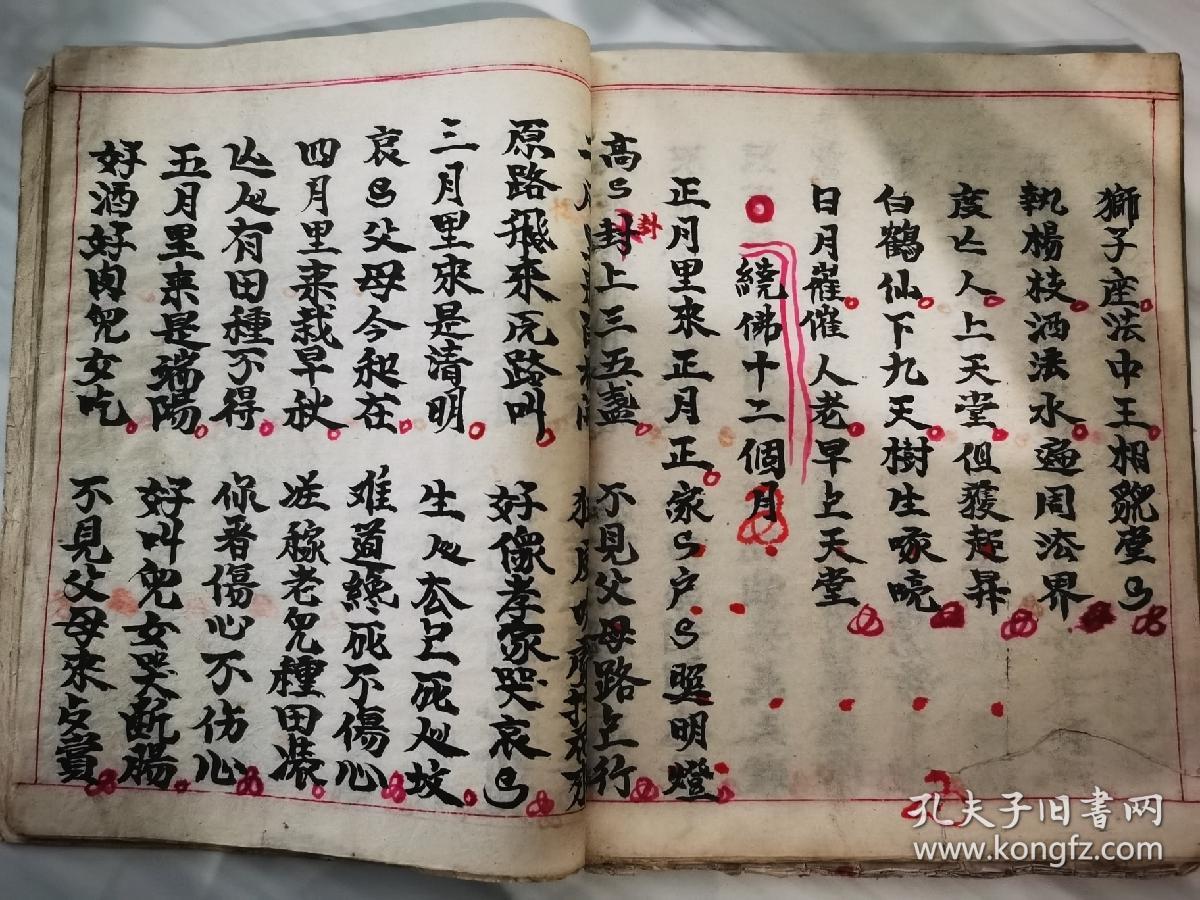 獅子座法中王相貌堂〻
執楊枝洒法水遍周法界
度亡人上天堂但獲超昇
白鶴仙下九天樹生啄
日月催催人老早上天堂
繞佛十二個月
正月里來正月正家〻户〻照明燈
高〻封上三五盞不見父母路上行
卦
原路飛來原路叫好像孝家哭哀〻
三月里來是清明生人去上死人坟
哀〻父母今何在难道終死不傷心
四月里来栽早秋老兒種田
亾人有田種不得你着傷心不伤心
五月里来是端陽好叫兒女哭断腸
好酒好肉兒女吃不見父母來
孔夫子旧书网
www.kongfz.com